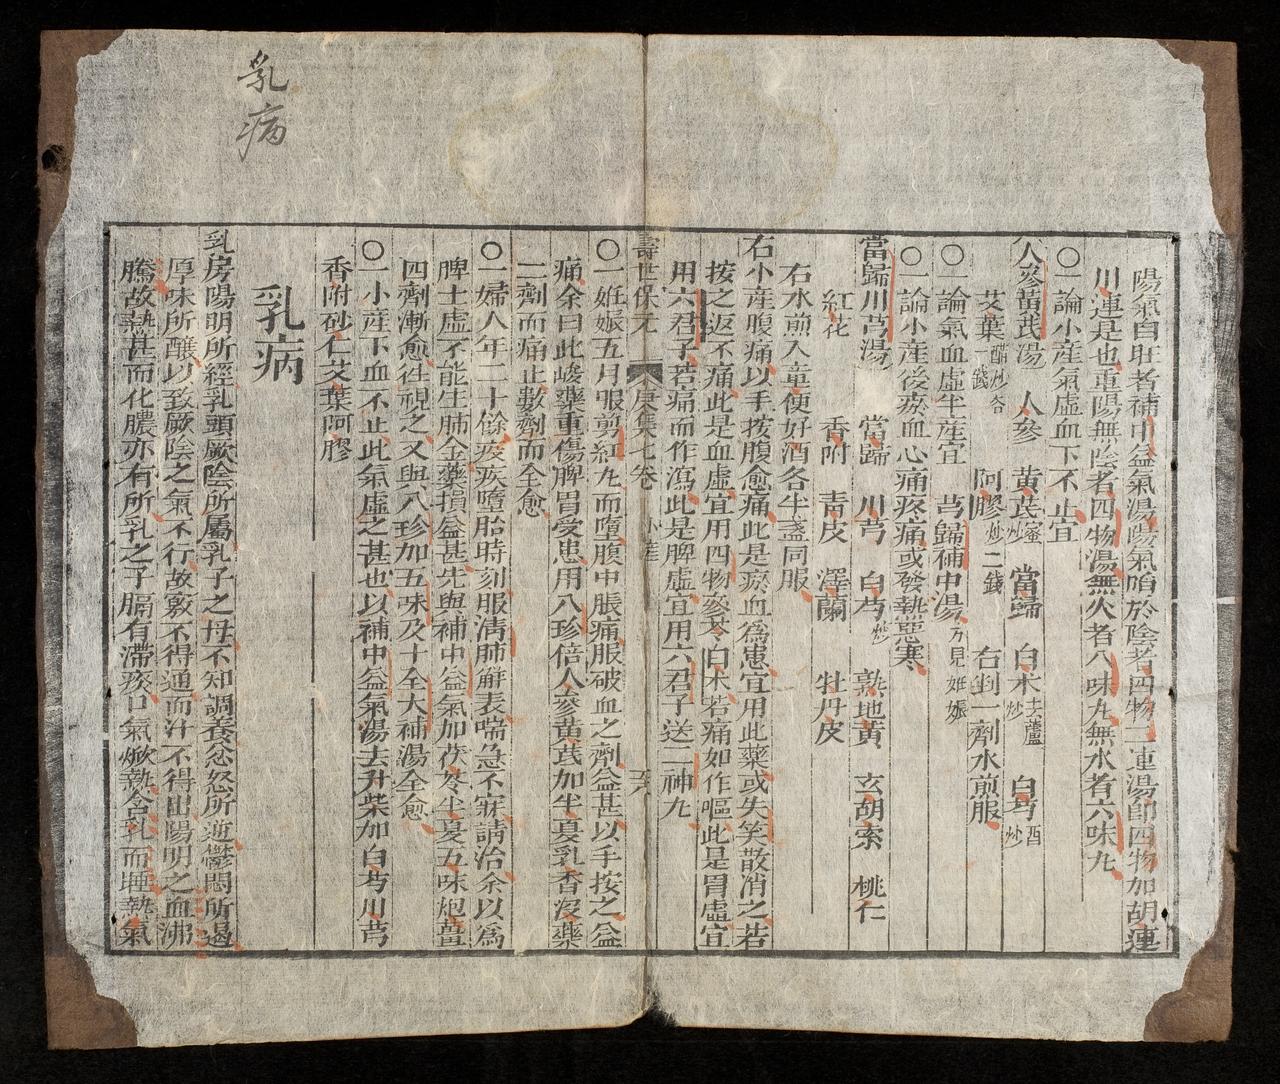 乳病
陽氣自旺者補中益氣湯陽氣陷於陰者四物二連湯即四物加胡連
川連是也重陽無陰者四物湯無火者八味丸無水者六味丸
○一論小産氣虛血下不止宜
人參黃芪湯 人參 黃芪蜜炒 當歸 白朮去蘆炒 白芍酒炒
艾葉醋炒各一錢 阿膠炒二錢 右剉一劑水煎服
○一論氣血虛半産宜 芎歸補中湯方見姙娠
○一論小産後瘀血心痛疼痛或發熱惡寒
當歸川芎湯 當歸 川芎 白芍炒 熟地黃 玄胡索 桃仁
紅花 香附 靑皮 澤蘭 牡丹皮
右水煎入童便好酒各半盞同服
右小産腹痛以手按腹愈痛此是瘀血爲患宜用此藥或失笑散消之若
按之返不痛此是血虛宜用四物參苓白朮若痛如作嘔此是胃虛宜
用六君子若痛而作瀉此是脾虛宜用六君子送二神丸
壽世保元 庚集七卷 小産
○一姙娠五月服剪紅丸而墮腹中脹痛服破血之劑益甚以手按之益
痛余曰此峻藥重傷脾胃受患用八珍倍人參黃芪加半夏乳香沒藥
二劑而痛止數劑而全愈
○一婦人年二十餘疫疾墮胎時刻服淸肺解表喘急不寐請治余以爲
脾土虛不能生肺金藥損益甚先與補中益氣加茯苓半夏五味炮薑
四劑漸愈徃視之又與八珍加五味及十全大補湯全愈
○一小産下血不止此氣虛之甚也以補中益氣湯去升柴加白芍川芎
香附砂仁艾葉阿膠
乳病
乳房陽明所經乳頭厥陰所屬乳子之母不知調養忿怒所逆鬱悶所遏
厚味所釀以致厥陰之氣不行故竅不得通而汁不得出陽明之血沸
騰故熱甚而化膿亦有所乳之子膈有滯痰口氣焮熱含乳而睡熱氣